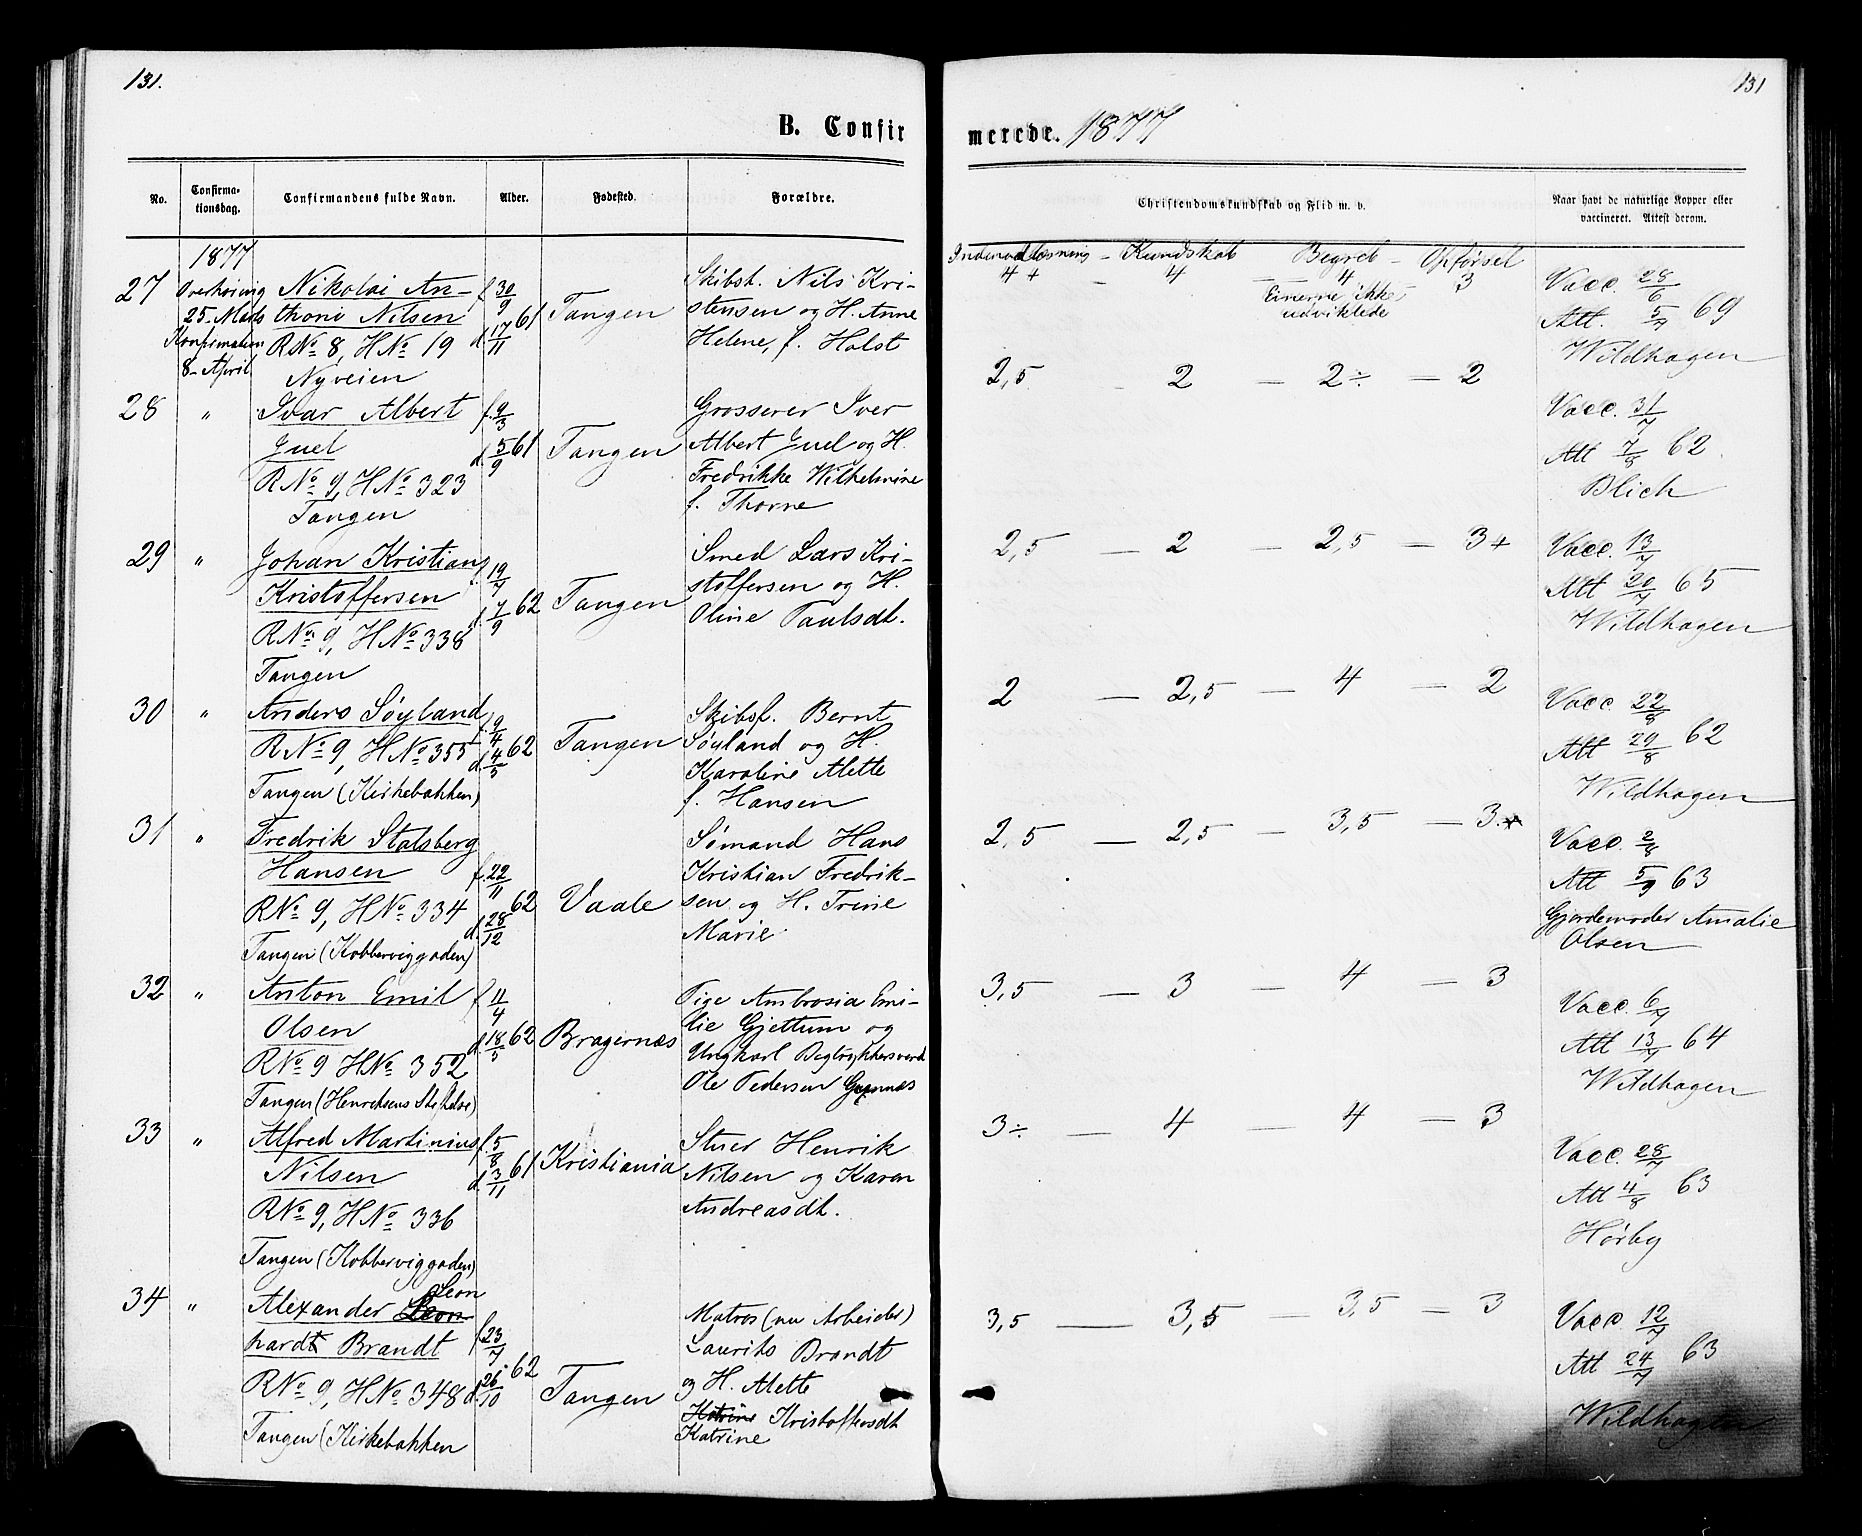 131.
B. Confir
No.
Confirma-
tionsdag.
Confirmandens fulde Navn.
Alder.
Fødested.
Forældre.
1877
27
Overhøring
25 Mars
Konfirmation
8 April
Nikolai An-
thoni Nilsen
RNo 8, HNo 19
Nyveien
f. 30/9
d. 17/11 61
Tangen
Skibst. Nils Kri-
stensen og H. Anne
Helene, f. Holst
28
"
Ivar Albert
Juel
RNo 9, HNo 323
Tangen
f. 9/3
d. 5/9 61
Tangen
Grosserer Iver
Albert Juel og H.
Fredrikke Wilhelmine
f. Thorne
29
"
Johan Kristian
Kristoffersen
RNo 9, HNo 338
Tangen
f. 19/7
d. 7/9 62
Tangen
Smed Lars Kri-
stoffersen og H.
Oline Paulsdt.
30
"
Anders Søyland
RNo 9, HNo 355
Tangen (Kirkebakken)
f. 9/4
d. 4/5 62
Tangen
Skibsf. Bernt
Søyland og H.
Karoline Alette
f. Hansen
31
"
Fredrik Stalsberg
Hansen
RNo 9, HNo 334
Tangen (Kobberviggaden)
f. 22/11
d. 28/12 62
Vaale
Sømand Hans
Kristian Fredrik-
sen og H. Trine
Marie
32
"
Anton Emil
Olsen
RNo 9 HNo 352
Tangen (Henriksens
f. 11/4
d. 18/5 62
Bragernæs
Pige Ambrosia Emi-
lie Gjettum og
Ungkarl
Ole Pedersen
33
"
Alfred Martinius
Nilsen
RNo 9, HNo 336
Tangen (Kobberviggaden)
f. 5/8
d. 3/11 61
Kristiania
Stuer Henrik
Nilsen og Karen
Andreasdt.
34
"
Leon
Alexander Leon
hardt Brandt
RNo 9, HNo 348
Tangen (Kirkebakken
f. 23/7
d. 26/10 62
Tangen
Matros (nu Arbeider)
Laurits Brandt
og H. Alette
Katrine Kristoffersdt
Katrine
131
merede. 1877
Christendomskundskab og Flid m. v.
Naar havt de naturlige Kopper eller
vaccineret. Attest derom.
Indenadlæsning – Kundskab – Begreb – Opførsel
4+ – 4 – 4 – 3
Evnerne ikke
udviklede
Vacc. 28/6
Att. 5/7 69
Wildhagen
2,5 – 2 – 2÷ – 2
Vacc. 31/7
Att 7/8 62
Blich
2,5 – 2 – 2,5 – 3+
Vacc. 13/7
Att 20/7 65
Wildhagen
2 – 2,5 – 4 – 2
Vacc. 22/8
Att 29/8 62
Wildhagen
2,5 – 2,5 – 3,5 – 3+
Vacc. 2/8
Att 5/9 63
Gjordemoder Amalie
Olsen
3,5 – 3 – 4 – 3
Vacc. 6/7
Att 13/7 64
Wildhagen
3÷ – 4 – 4 – 3
Vacc. 28/7
Att 4/8 63
Hørby
3,5 – 3,5 – 3,5 – 3
Vacc 12/7
Att 24/7 63
Wildhagen